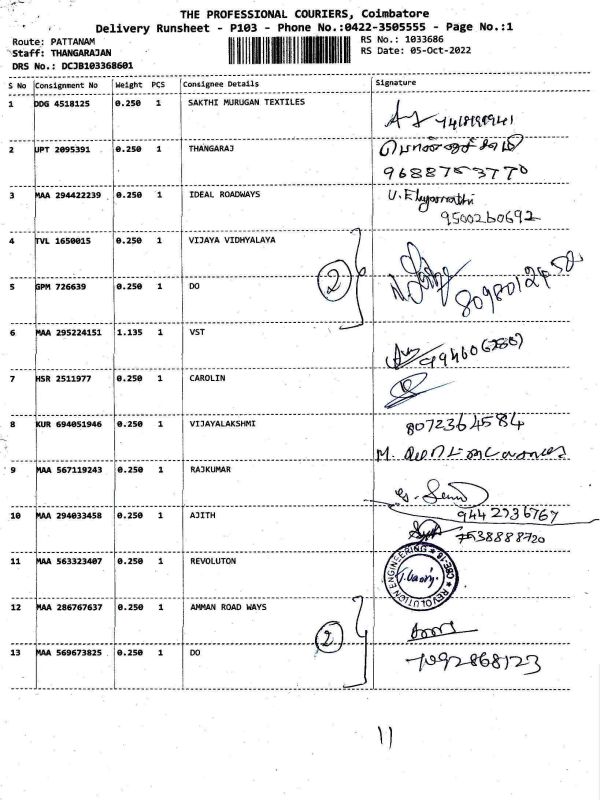 THE PROFESSIONAL COURIERS, Coimbatore
Delivery Runsheet - P103 - Phone No.:0422-3505555 - Page No.:1
Route: PATTANAM RS No.: 1033686
Staff: THANGARAJAN RS Date: 05-Oct-2022
DRS No.: DCJB103368601
S No Consignment No Weight PCS Consignee Details Signature
1 DDG 4518125 0.250 1 SAKTHI MURUGAN TEXTILES
2 UPT 2095391 0.250 1 THANGARAJ
9688753770
3 MAA 294422239 0.250 1 IDEAL ROADWAYS
9500260692
4 TVL 1650015 0.250 1 VIJAYA VIDHYALAYA
2
5 GPM 726639 0.250 1 DO
6 MAA 295224151 1.135 1 VST
7 HSR 2511977 0.250 1 CAROLIN
8 KUR 694051946 0.250 1 VIJAYALAKSHMI 8072364584
9 MAA 567119243 0.250 1 RAJKUMAR
9442736767
10 MAA 294033458 0.250 1 AJITH
7538888720
11 MAA 563323407 0.250 1 REVOLUTON
REVOLUTION ENGINEERING CBE-18
12 MAA 286767637 0.250 1 AMMAN ROAD WAYS
2
13 MAA 569673825 0.250 1 DO 7092868123
11